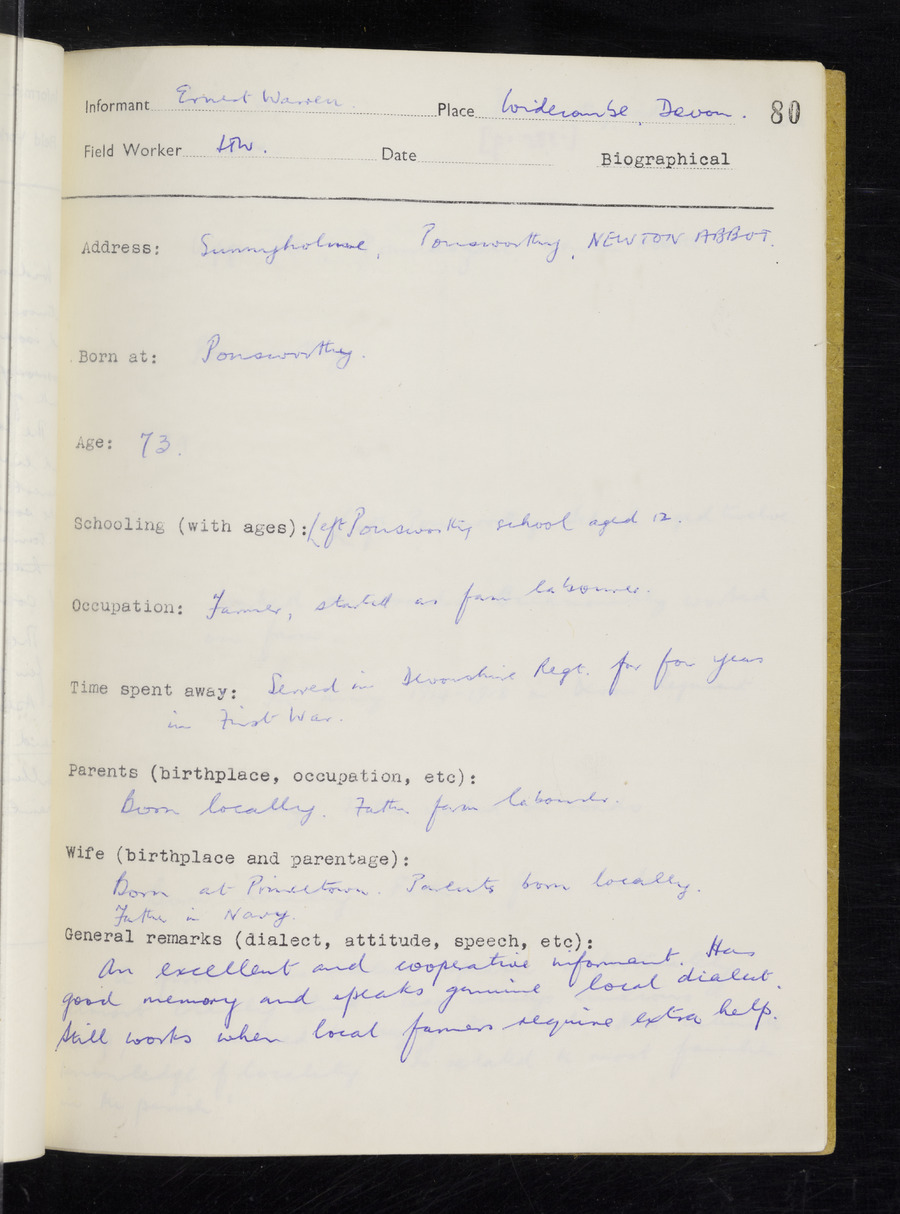 Informant Ernest Warren. Place Widecombe, Devon. 80
Field Worker Date Biographical
Address: Sunnyholme, Ponsworthy, NEWTON ABBOT.
Born at: Ponsworthy.
Age: 73.
Schooling (with ages): Left Ponsworthy school aged 12.
Occupation: Farmer, started as farm labourer.
Time spent away: Served in Devonshire Regt. for years
in First War.
Parents (birthplace, occupation, etc):
Born locally. Father farm labourer.
Wife (birthplace and parentage):
Born at Princetown. Parents born locally.
Father in Navy.
General remarks (dialect, attitude, speech, etc):
An excellent and cooperative informant. Has
good memory and speaks genuine local dialect.
Still works when local farmers require extra help.